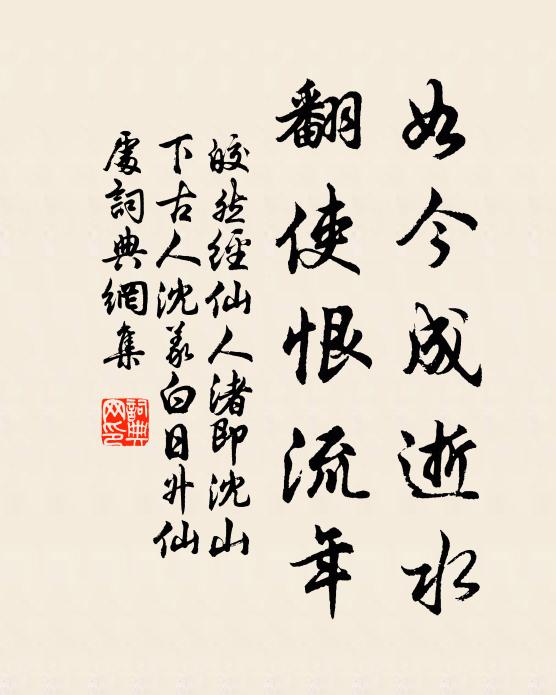 如今成逝水
翻使恨流年
皎然經仙人渚即沈山
下古人沈羲白日升仙
處詞典網集
詞典
网印